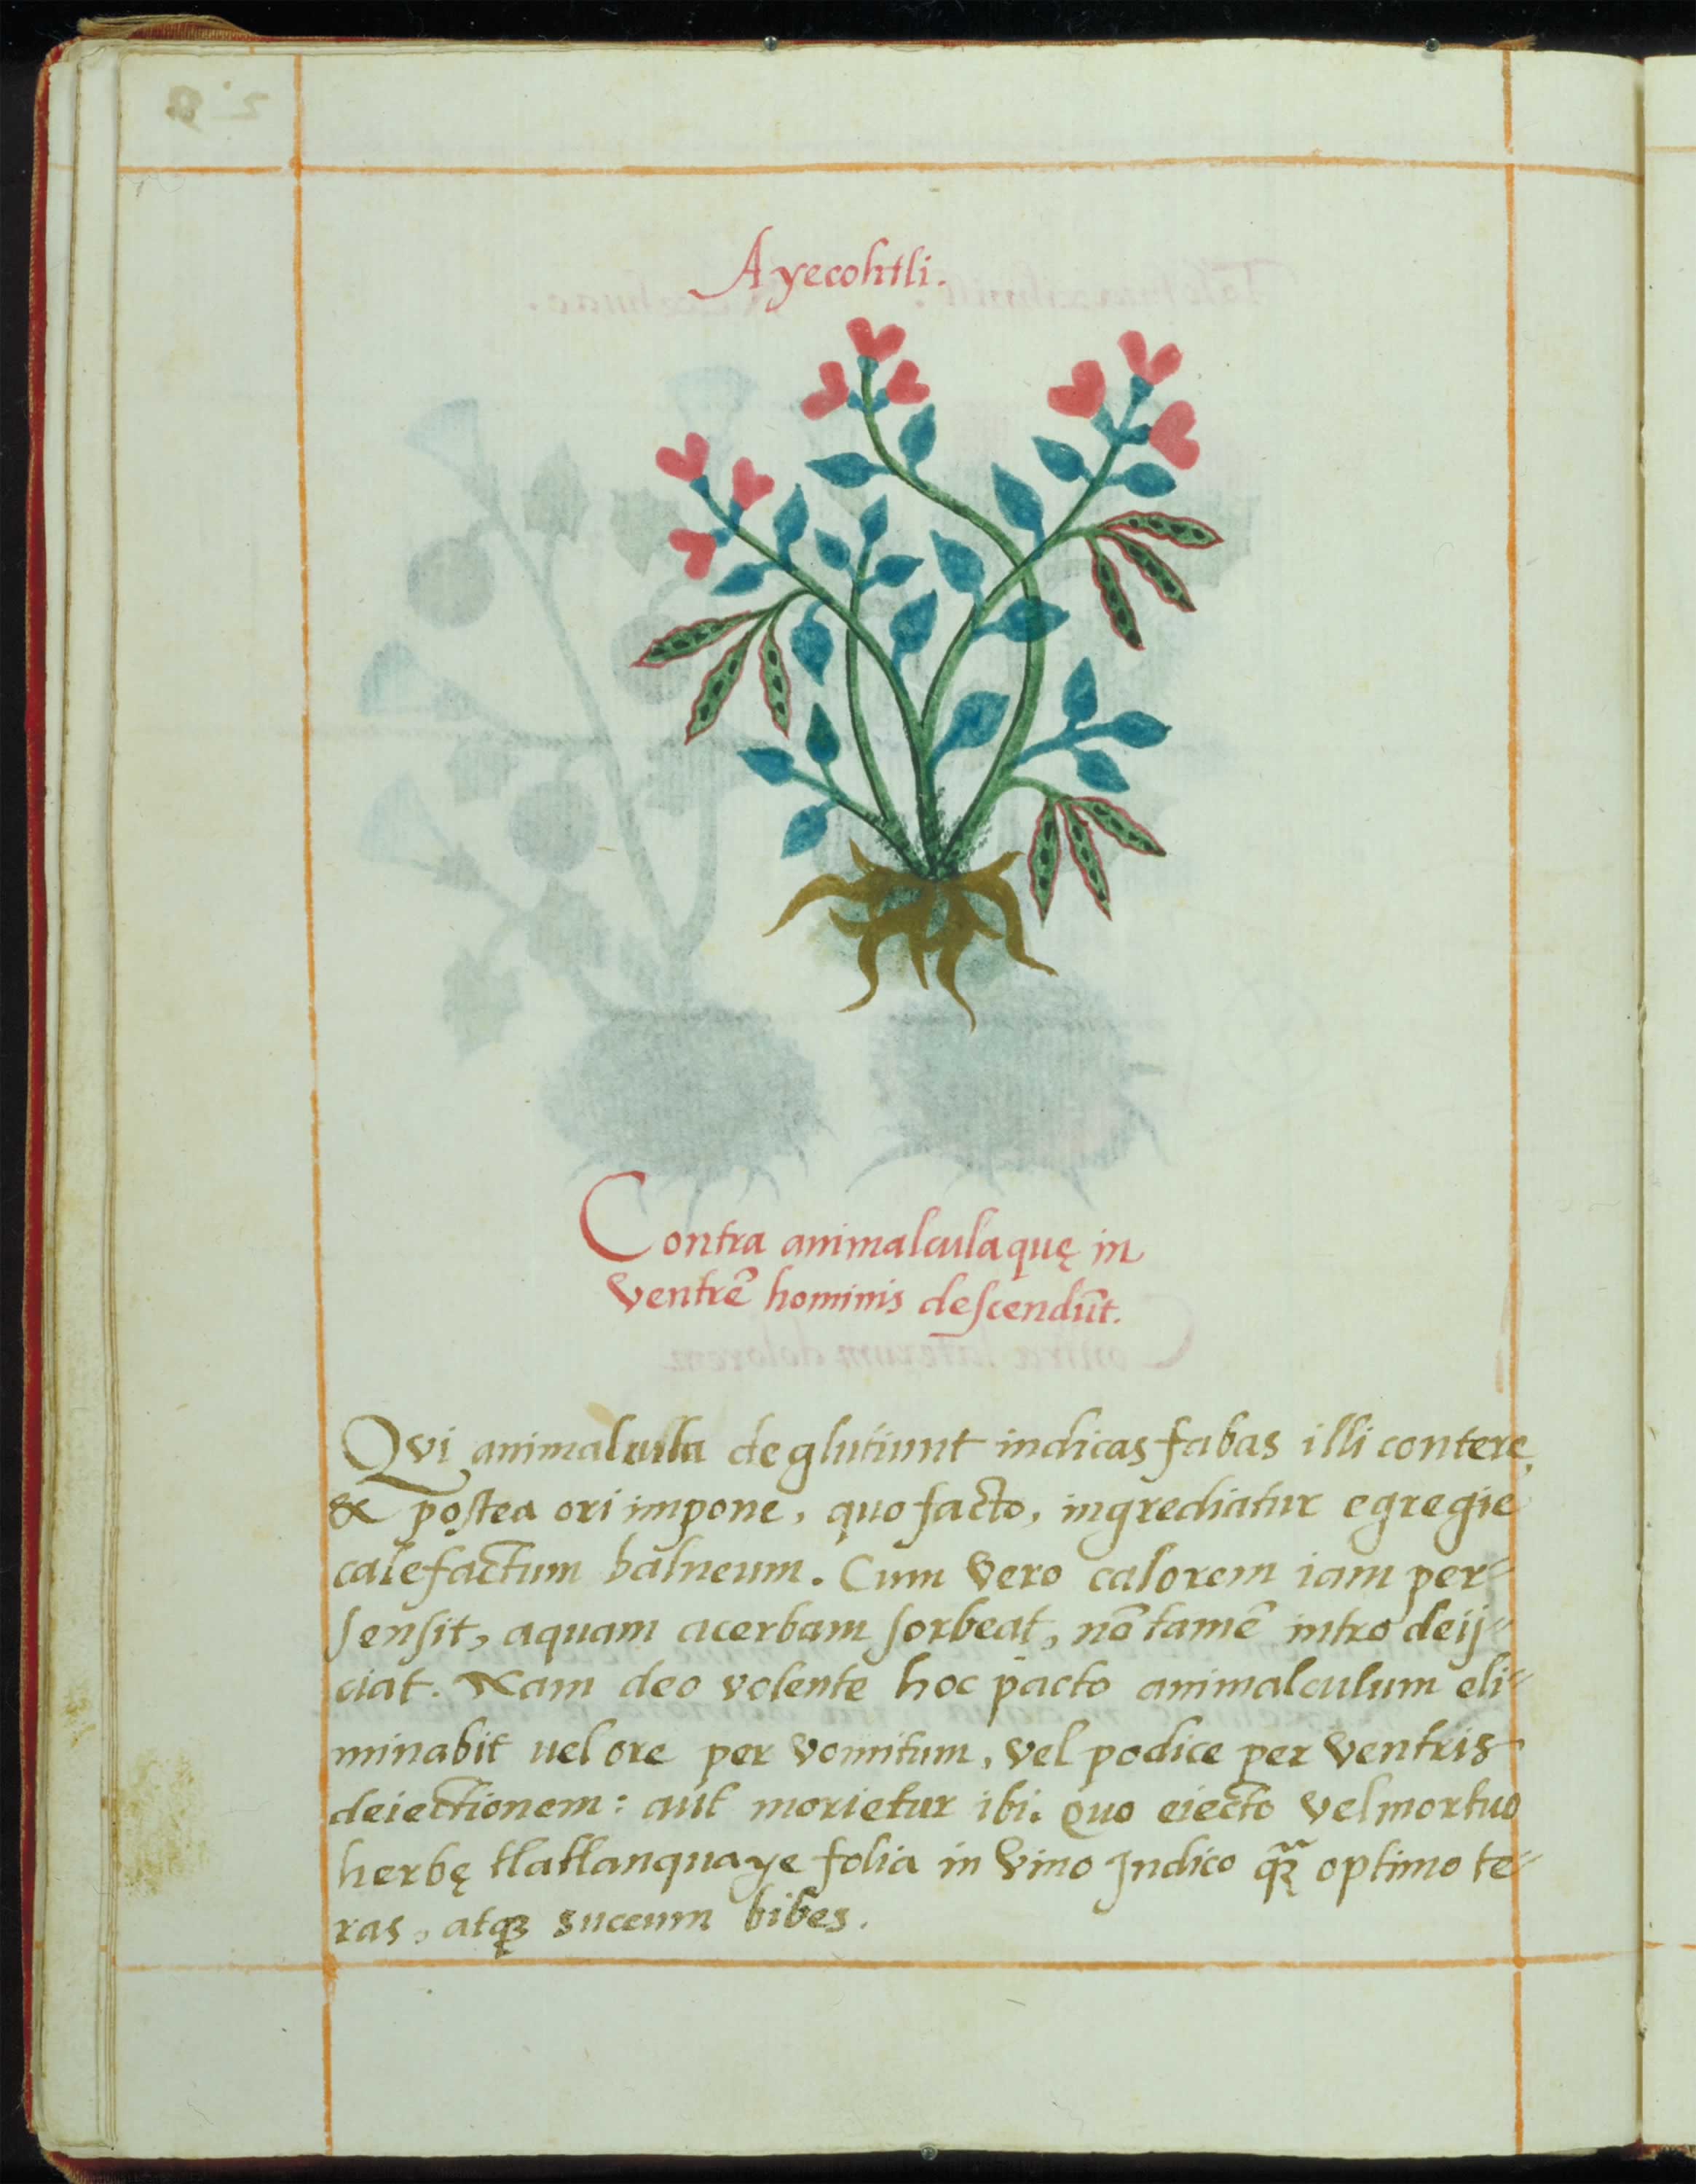 Ayecohtli.
Contra animalcula quę in
ventrē hominis descendūt.
Qvi animalculla deglutiunt indicas fabas illi contere,
& postea ori impone, quo facto, ingrediatur egregie
calefactum balneum. Cum vero calorem iam per-
sensit, aquam acerbam sorbeat, nō tamē intro deij-
ciat. Nam deo volente hoc pacto animalculum eli-
minabit uel ore per vomitum, vel podice per ventris
deiectionem: aut morietur ibi. Quo eiecto vel mortuo
herbę tlatlanquaye folia in vino Indico optimo te-
ras, atqꝫ succum bibes.